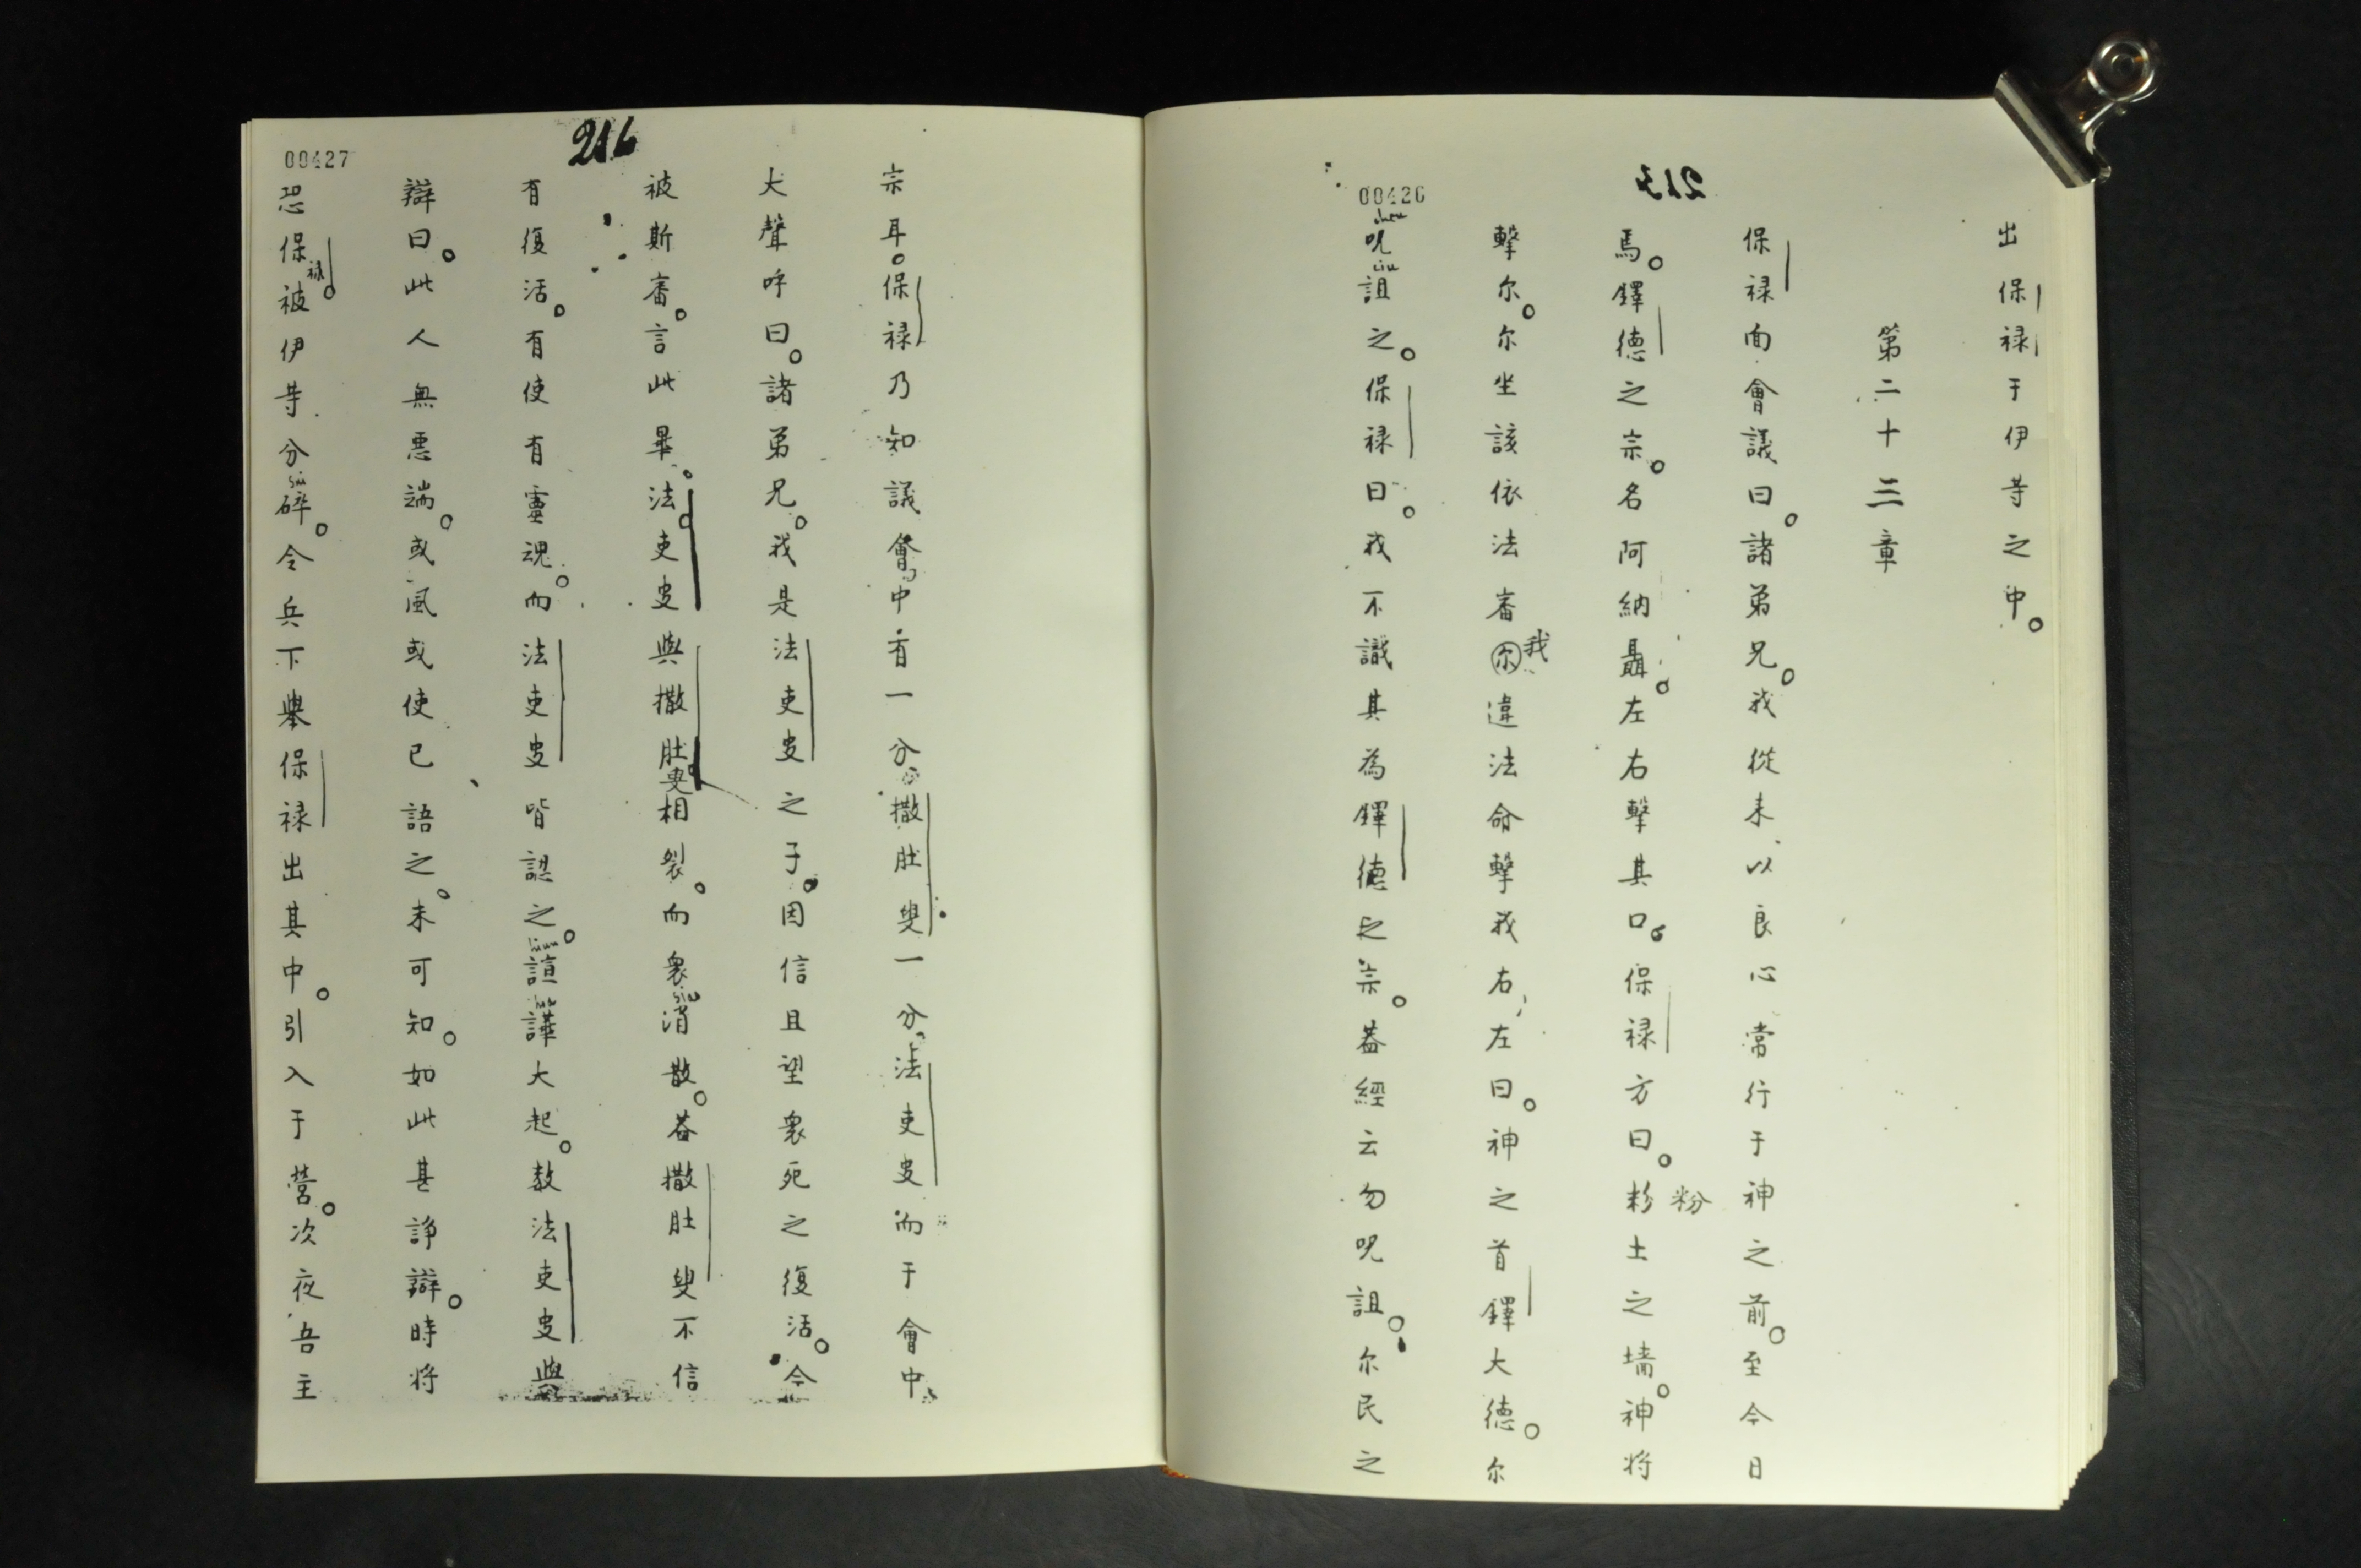 00426
出保禄于伊等之中。
第二十三章
保禄面會議曰。諸弟兄。我從来以良心常行于神之前。至今日
焉。鐸德之宗。名阿納聶。左右擊其口。保禄方曰。粉土之墙。神将
粉
擊尔。尔坐該依法審尔違法命擊我右左曰。神之首鐸大德。尔
我
呪詛之。保禄曰。我不識其為鐸德之宗。盖經云勿呪詛。尔民之
00427
216
宗耳。保禄乃知議會中有一分撒肚叟一分。法吏叟而于會中。
大聲呼曰。諸弟兄。我是法吏叟之子。因信且望衆死之復活。今
被斯審。言此畢。法吏叟與撒肚叟相裂。而衆消散。盖撒肚叟不信
有復活。有使有靈魂。而法吏叟皆認之。諠譁大起。数法吏叟與
辯曰。此人無悪端。或風或使已語之。未可知。如此甚諍辯。時将
恐保禄被伊等分碎。令兵下舉保禄出其中。引入于營。次夜吾主